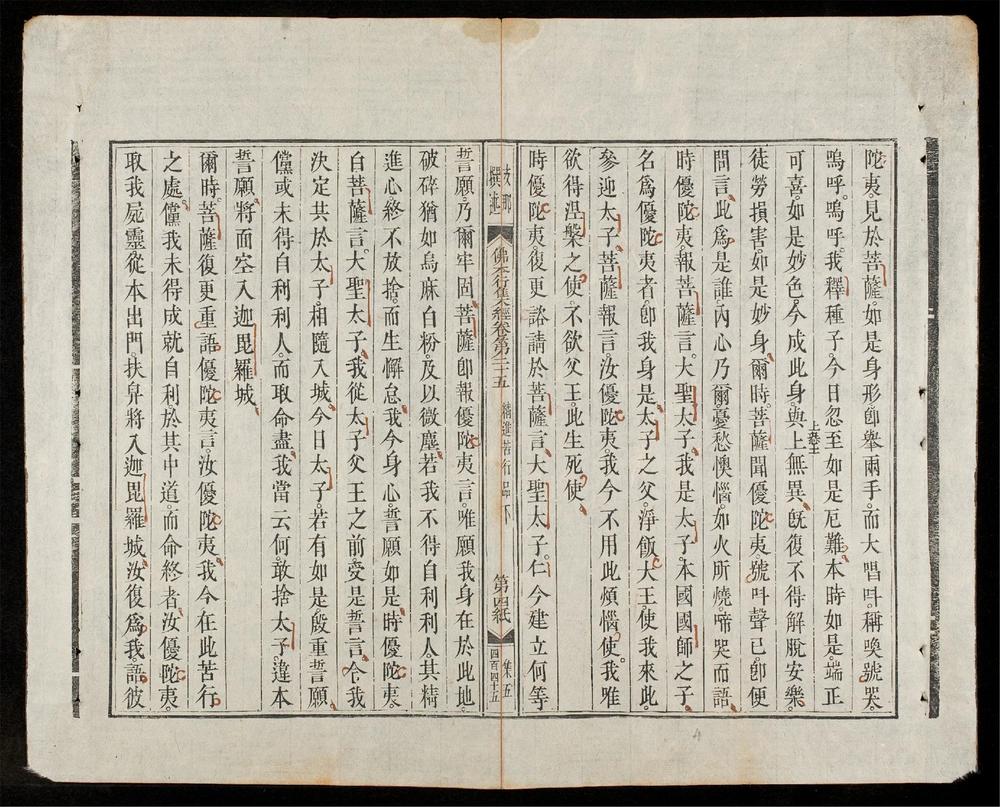 陀夷。見於菩薩。如是身形即舉兩手。而大唱呌。稱喚號哭。
嗚呼。嗚呼。我釋種子。今日忽至如是厄難。本時如是端正
可喜。如是妙色。今成此身。與上無異。旣復不得解脫安樂。
上恐土
徒勞損害。如是妙身。爾時菩薩聞優陀夷。號呌聲已。卽便
問言。此爲是誰。內心乃爾憂愁懊惱。如火所燒。啼哭而語。
時優陀夷。報菩薩言。大聖太子。我是太子。本國國師之子。
名爲優陀夷者。卽我身是。太子之父。淨飯大王。使我來此。
參迎太子。菩薩報言。汝優陀夷。我今不用此煩惱使。我唯
欲得涅槃之使。不欲父王此生死使。
時優陀夷。復更諮請於菩薩言。大聖太子。仁今建立何等
支那
撰述
佛本行集經卷第二十五
精進苦行品下
第四紙
集五
四百四十五
誓願。乃爾牢固。菩薩卽報優陀夷言。唯願我身在於此地。
破碎猶如烏麻白粉。及以微塵。若我不得自利利人。其精
進心終不放捨。而生懈怠。我今身心。誓願如是。時優陀夷。
白菩薩言。大聖太子。我從太子父王之前。受是誓言。令我
決定其於太子。相隨入城。今日太子。若有如是。殷重誓願。
儻或未得自利利人。而取命盡。我當云何。敢捨太子。違本
誓願。將面空入迦毘羅城。
爾時。菩薩復更重語優陀夷言。汝優陀夷。我今在此苦行。
之處。儻我未得成就自利於其中道。而命終者。汝優陀夷。
取我屍靈。從本出門。扶舁將入迦毘羅城。汝復爲我。語彼